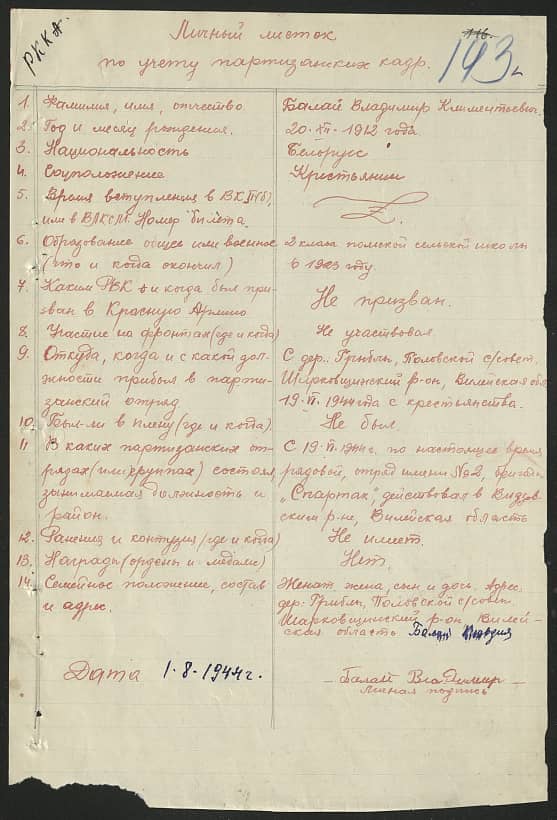 РККА.
116.
193
Личный листок
по учету партизанских кадр.
1. Фамилия, имя, отчество Балай Владимир Климентьевич
2. Год и месяц рождения. 20-XII-1912 года.
3. Национальность Белорусс
4. Соцположение Крестьянин
5. Время вступления в ВКП(б),
или в ВЛКСМ. Номер билета. Z.
6. Образование общее или военное 2 класа польской сельской школы
(что и когда окончил) в 1923 году.
7. Каким РВК и когда был при-
зван в Красную Армию Не призван.
8. Участие на фронтах (где и когда) Не участвовал
9. Откуда, когда и с какой дол- С дер. Грибли, Половской с/совет,
жности прибыл в парти- Шарковщинский р-он, Вилейская обл
занский отряд 19-VI-1944 года с крестьянства.
10. Был-ли в плену (где и когда). Не был
11. В каких партизанских от- С 19-VI-1944г. по настоящее время
рядах (или группах) состоял, рядовой, отряд имени №2, бригады
занимаемая должность и „Спартак", действовал в Видзов-
район. ском р-не, Вилейская область
12. Ранения и контузия (где и когда) Не имеет.
13. Награды (ордены и медали) Нет.
14. Семейное положение, состав Женат жена, сын и дочь. Адрес:
и адрес. дер. Грибли, Половской с/совет,
Шарковщинский р-он Вилей-
ская область Балай
Дата 1-8-1944г. — Балай Владимир —
Личная подпись